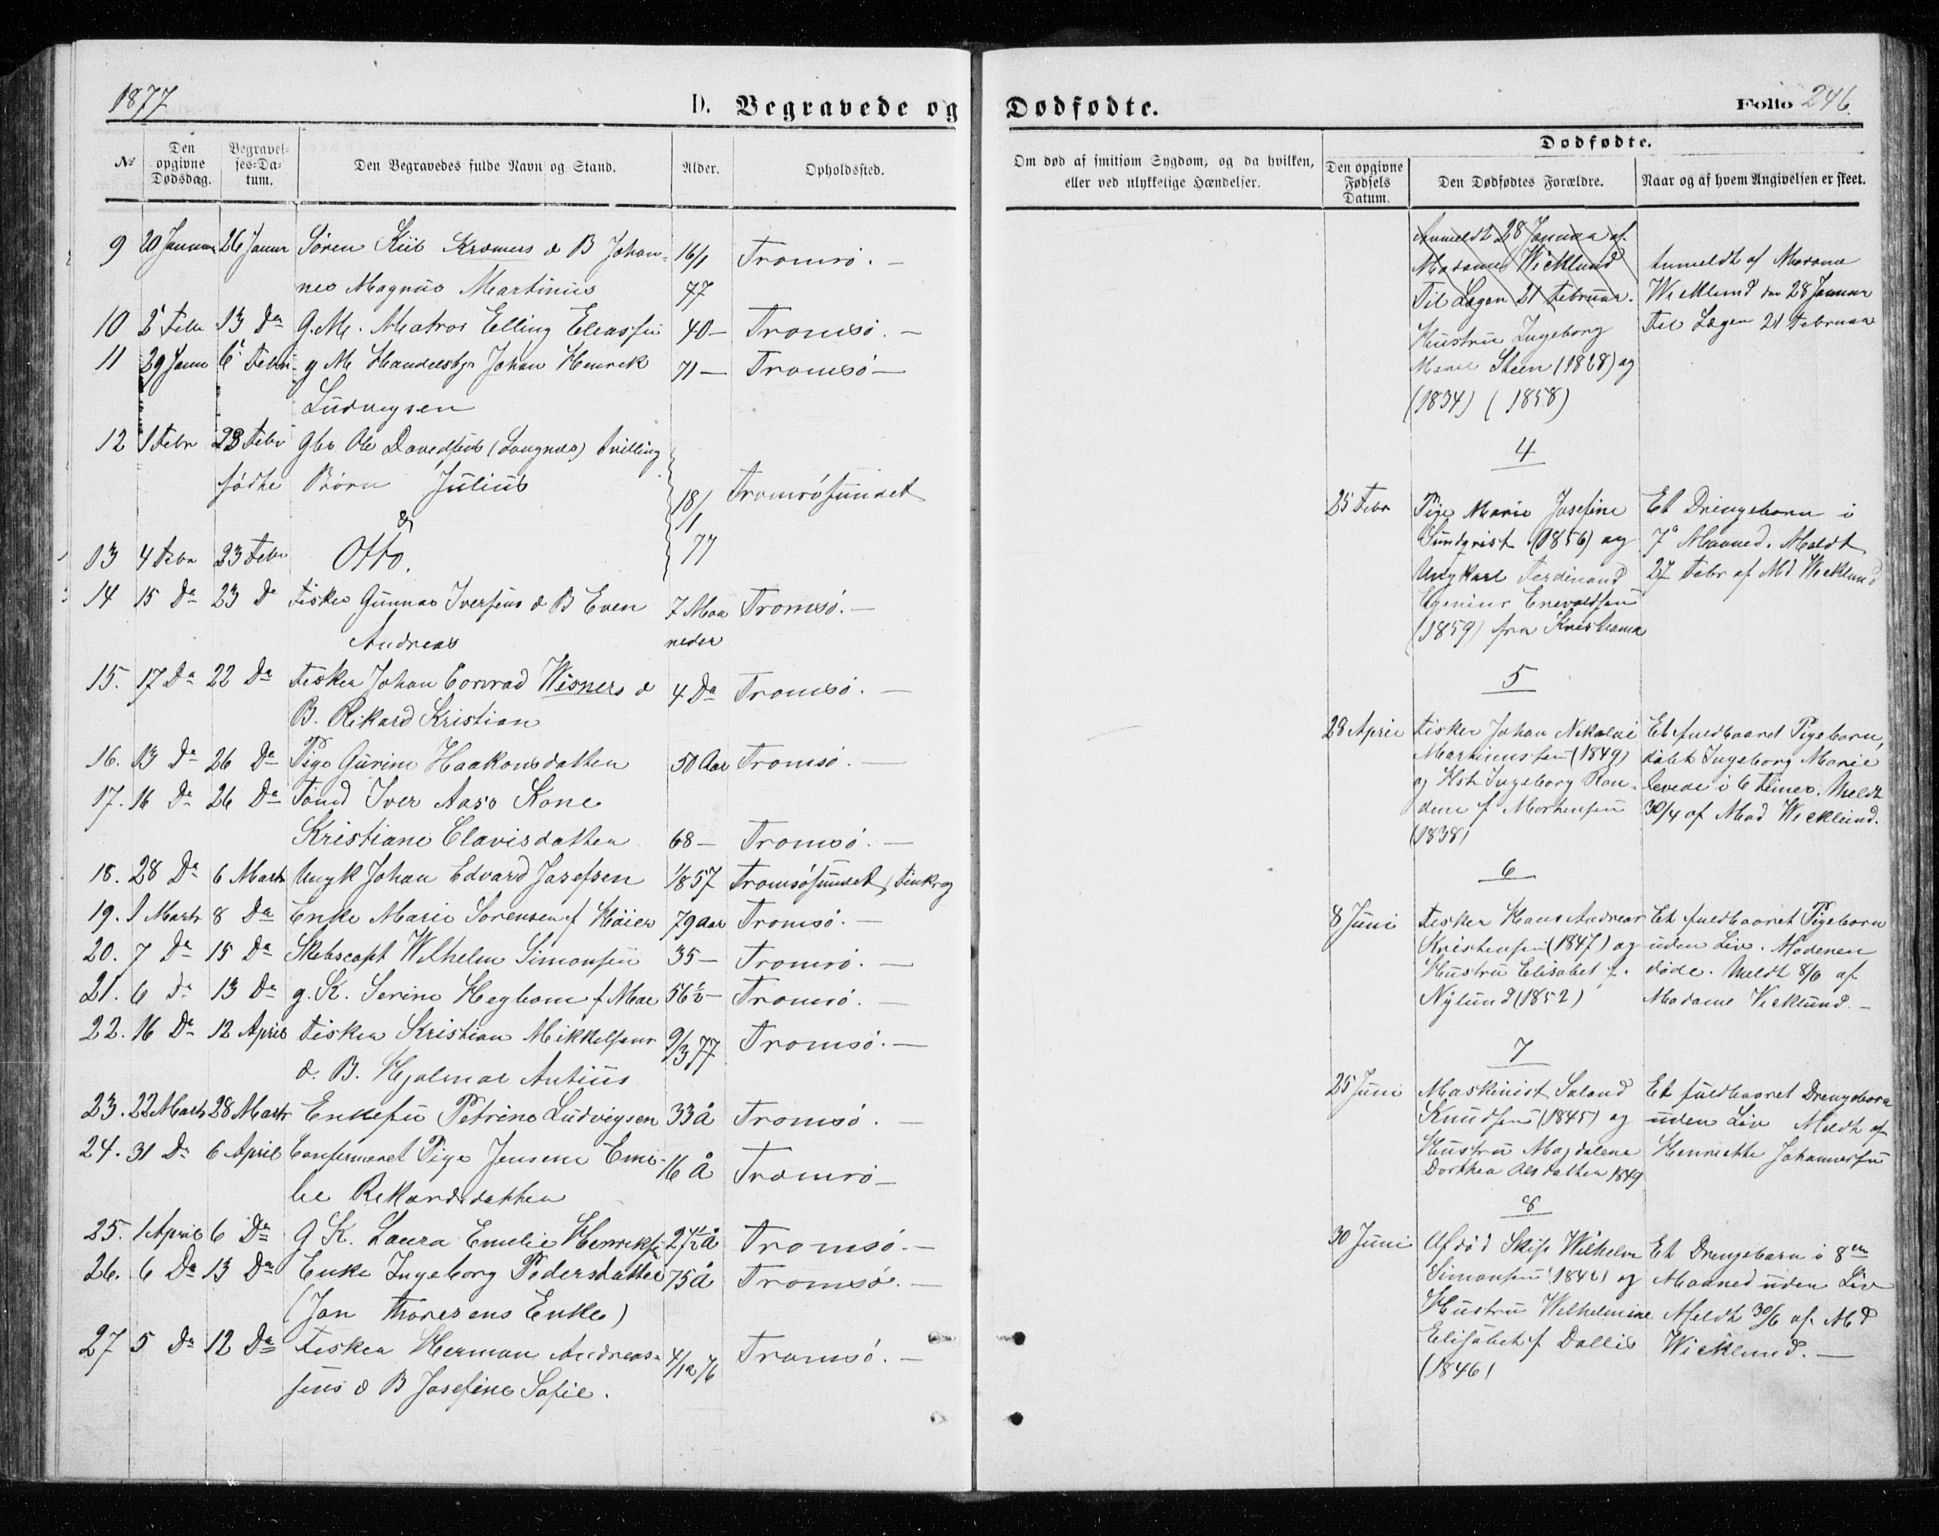 1877
D. Begravede og Dødfødte.
Folio 246
№
Den opgivne Dødsdag.
Begravelses-Datum.
Den Begravedes fulde Navn og Stand.
Alder.
Opholdssted.
Om død af smitsom Sygdom, og da hvilken, eller ved ulykkelige Hændelser.
Dødfødte.
Den opgivne Fødsels Datum.
Den Dødfødtes Forældre.
Naar og af hvem Angivelsen er skeet.
9 20 Januar 26 Januar Søren Kiil Kræmers d B Johan- 16/1 Tromsø. —
nes Magnus Martinius 77
10 2 Febr 13 Da G.M. Matros Elling Eliassen 40 — Tromsø. —
11 29 Janu 6 Febr g M Handelsbgr Johan Henrik 71 — Tromsø —
Ludvigsen
12 1 Febr 23 Febr Gbr Ole Davidsens (Langnæs) tvilling
fødte Børn Julius 18/1 Tromsøsundet
&
13 4 Febr 23 Febr Otto. 77
14 15 Da 23 D Fisker Gunnar Iversens d B Even 7 Maa Tromsø. —
Andreas neder
15. 17 Da 22 Da Fisker Johan Conrad Wisners d 4 Da Tromsø. —
B. Rikard Kristian
16. 13 Da 26 Da Pige Gurine Haakonsdatter 50 Aar Tromsø. —
17. 16 Da 26 Da Tønd Iver Aas's Kone
Kristiane Clavisdatter 68 — Tromsø. —
18. 28 Da 6 Marts Ungk Johan Edvard Josefsen 1/8 57 Tromsøsundet, Finkrog
19. 1 Marts 8 Da Enke Marie Sørensen f Høier 79 aar Tromsø. —
20. 7 Da 15 Da Skibscapt Wilhelm Simonsen 35 — Tromsø. —
21. 6 da 13 Da g. K. Serine Hegbom f Moe 56 ½ — Tromsø. —
22. 16 Da 12 April Fisker Kristian Mikkelsens 9/3 77 Tromsø. —
d. B. Hjalmar Antius
23. 22 Marts 28 Marts Enkefru Petrine Ludvigsen 33 Å Tromsø. —
24. 31 Da 6 April Confirmeret Pige Jensine Emi- 16 Å Tromsø —
lie Rikardsdatter
25. 1 April 6 Da g K. Laura Emilie Henriksen 27 ½ Å Tromsø. —
26. 6 Da 13 Da Enke Ingeborg Pedersdatter 75 Å Tromsø. —
(Jon Thoresens Enke)
27 5 Da 12 Da Fisker Herman Andreas- 4/12 76 Tromsø. —
sens d B Josefine Sofie.
Anmeldt 28 Januar af
Madame Wicklund
Til Lægen 21 Februar.
Hustru Ingeborg
Marie Steen (1828) og
(1834) (1858)
Anmeldt af Madame
Wicklund den 28 Januar
Til Lægen 21 Februar
4
25 Febr
Pige Marie Josefine
Sundqvist (1856) og
Ungkarl Ferdinand
Enevoldsen
(1859) fra Kristiania
Et Drengebarn i
7de Maaned. Meldt
27 Febr af Md Wicklund
5
28 April
Fisker Johan Nikolai
Martinussen (1849)
og Hst Ingeborg Ran-
dine f Mortensen
(1838)
Et fuldbaaret Pigebarn,
døbt Ingeborg Marie
levede i 6 Timer. Meldt
30/4 af Mad Wicklund.
6
8 Juni
Fisker Hans Andreas
Kristensen (1847) og
Hustru Elisabet f.
Nylund (1852)
Et fuldbaaret Pigebarn
uden Liv. Moderen
døde. Meldt 8/6 af
Madame Wicklund. —
7
25 Juni
Maskinist Saland
Knudsen (1845) og
Hustru Magdalena
Dorthea Olsdatter 1849
Et fuldbaaret Drengebarn
uden Liv Meldt af
Henriette Johannesen
8
30 Juni
Afdød Skibs Wilhelm
Simonsen (1842) og
Hustru Wilhelmine
Elisabet f Dallis
(1846)
Et Drengebarn i 8de
Maaned uden Liv
Meldt 30/6 af Md
Wicklund. —